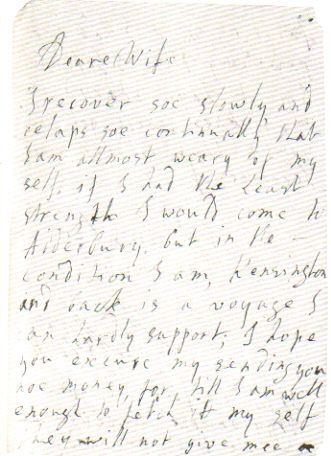 Deare Wife
I recover soe slowly and
relaps soe continually that
I am allmost weary of my
self, if I had the least
strength I would come to
Alderbury, but in the
condition I am, Kensington
and back is a voyage I
can hardly support, I hope
you excuse my sending you
noe money, for till I am well
enough to fetch it my self
they will not give mee a